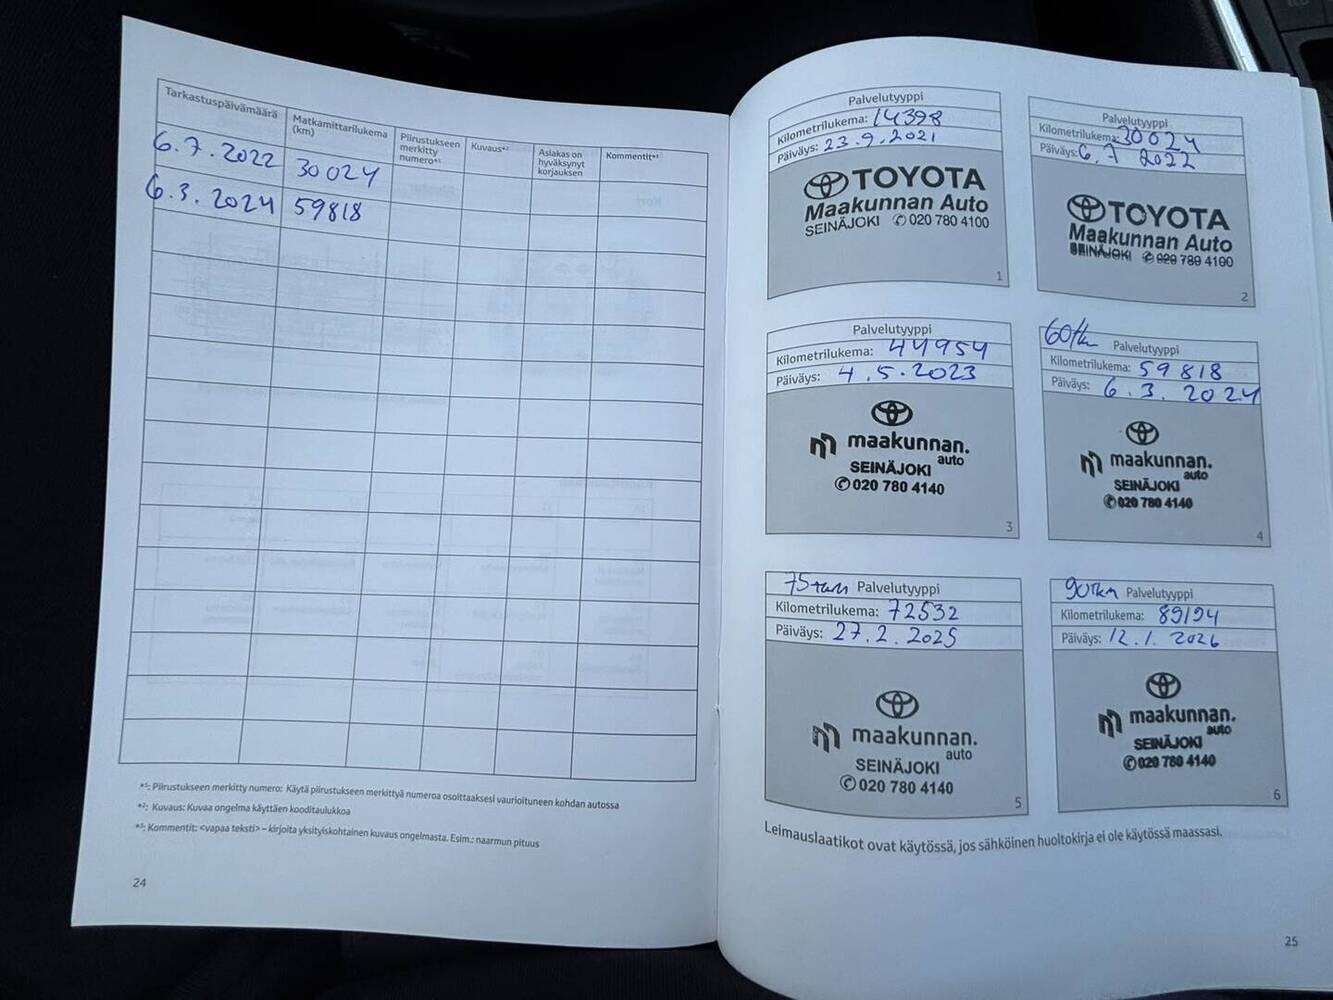 Tarkastuspäivämäärä
Matkamittarilukema
(km)
Piirustukseen
merkitty
numero*¹
Kuvaus*²
Asiakas on
hyväksynyt
korjauksen
Kommentit*³
6.7.2022 30024
6.3.2024 59818
*¹: Piirustukseen merkitty numero: Käytä piirustukseen merkittyä numeroa osoittaaksesi vaurioituneen kohdan autossa
*²: Kuvaus: Kuvaa ongelma käyttäen kooditaulukkoa
*³: Kommentit: <vapaa teksti> – kirjoita yksityiskohtainen kuvaus ongelmasta. Esim.: naarmun pituus
24
Palvelutyyppi
Kilometrilukema: 14398
Päiväys: 23.9.2021
TOYOTA
Maakunnan Auto
SEINÄJOKI ✆ 020 780 4100
1
Palvelutyyppi
Kilometrilukema: 30024
Päiväys: 6.7 2022
TOYOTA
Maakunnan Auto
SEINÄJOKI ✆ 020 780 4100
2
Palvelutyyppi
Kilometrilukema: 44954
Päiväys: 4.5.2023
maakunnan.
auto
SEINÄJOKI
✆ 020 780 4140
3
60tkm Palvelutyyppi
Kilometrilukema: 59818
Päiväys: 6.3.2024
maakunnan.
auto
SEINÄJOKI
✆ 020 780 4140
4
75tkm Palvelutyyppi
Kilometrilukema: 72532
Päiväys: 27.2.2025
maakunnan.
auto
SEINÄJOKI
✆ 020 780 4140
5
90tkm Palvelutyyppi
Kilometrilukema: 89194
Päiväys: 12.1.2026
maakunnan.
auto
SEINÄJOKI
✆ 020 780 4140
6
Leimauslaatikot ovat käytössä, jos sähköinen huoltokirja ei ole käytössä maassasi.
25